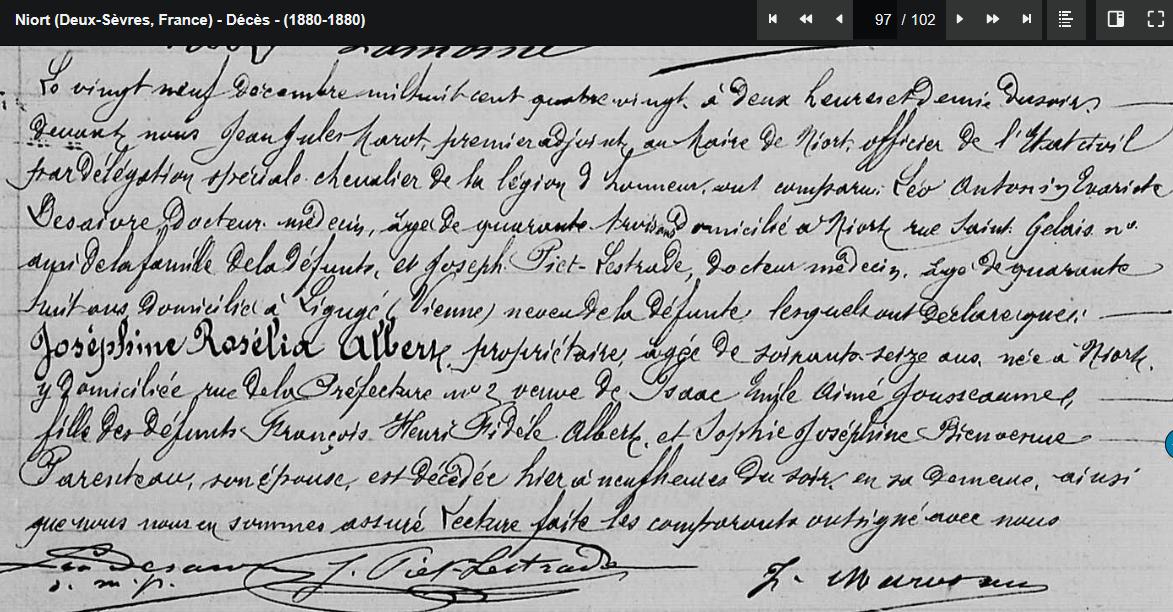 Niort (Deux-Sèvres, France) - Décès - (1880-1880)
97 / 102
Le vingt neuf Décembre mil huit cent quatre vingt, à deux heures et demie du soir,
devant nous Jean Jules Marot, premier adjoint au Maire de Niort, officier de l'Etat civil
par délégation spéciale chevalier de la légion d'honneur, ont comparu Léo Antonin Evariste
Desaivre, Docteur médecin, âgé de quarante trois ans Domicilié à Niort rue Saint Gelais no
ami de la famille de la Défunte, et Joseph Piet-Lestrade, docteur médecin, âgé de quarante
huit ans Domicilié à Ligugé (Vienne) neveu de la défunte, lesquels ont Déclaré que:
Joséphine Rosélia Albert, propriétaire, âgée de soixante-seize ans, née à Niort,
y Domiciliée rue de la Préfecture no 2 veuve de Isaac Emile Aimé Jousseaume,
fille des Défunts François Henri Fidèle Albert, et Sophie Joséphine Bienvenue
Parenteau, son épouse, est décédée hier à neuf heures du soir, en sa Demeure, ainsi
que nous nous en sommes assuré Lecture faite les comparants ont signé avec nous
Léo Desaivre J. Piet-Lestrade J. Marot
d. m. p.